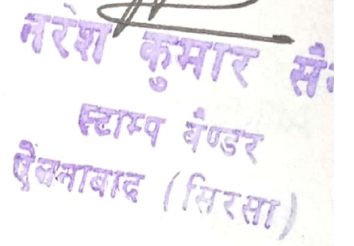 नरेश कुमार
स्टाम्प वैण्डर
ऐलनाबाद (सिरसा)